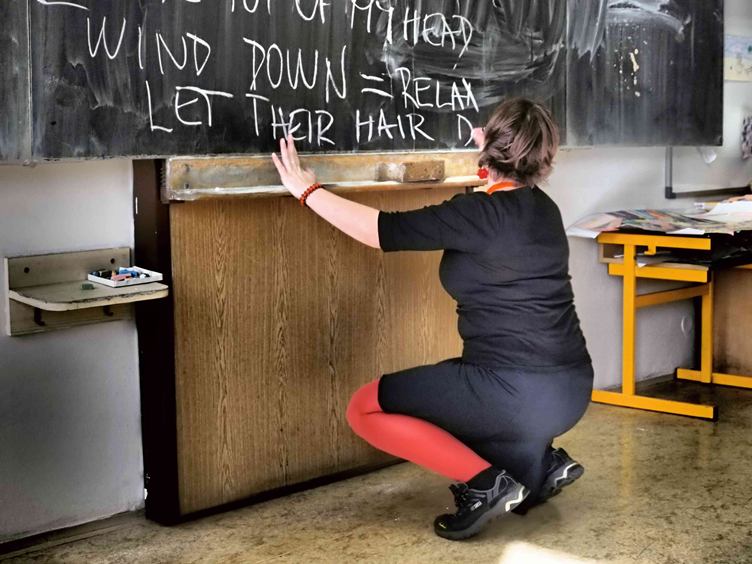 TOP OF MY HEAD
WIND DOWN = RELAX
LET THEIR HAIR D